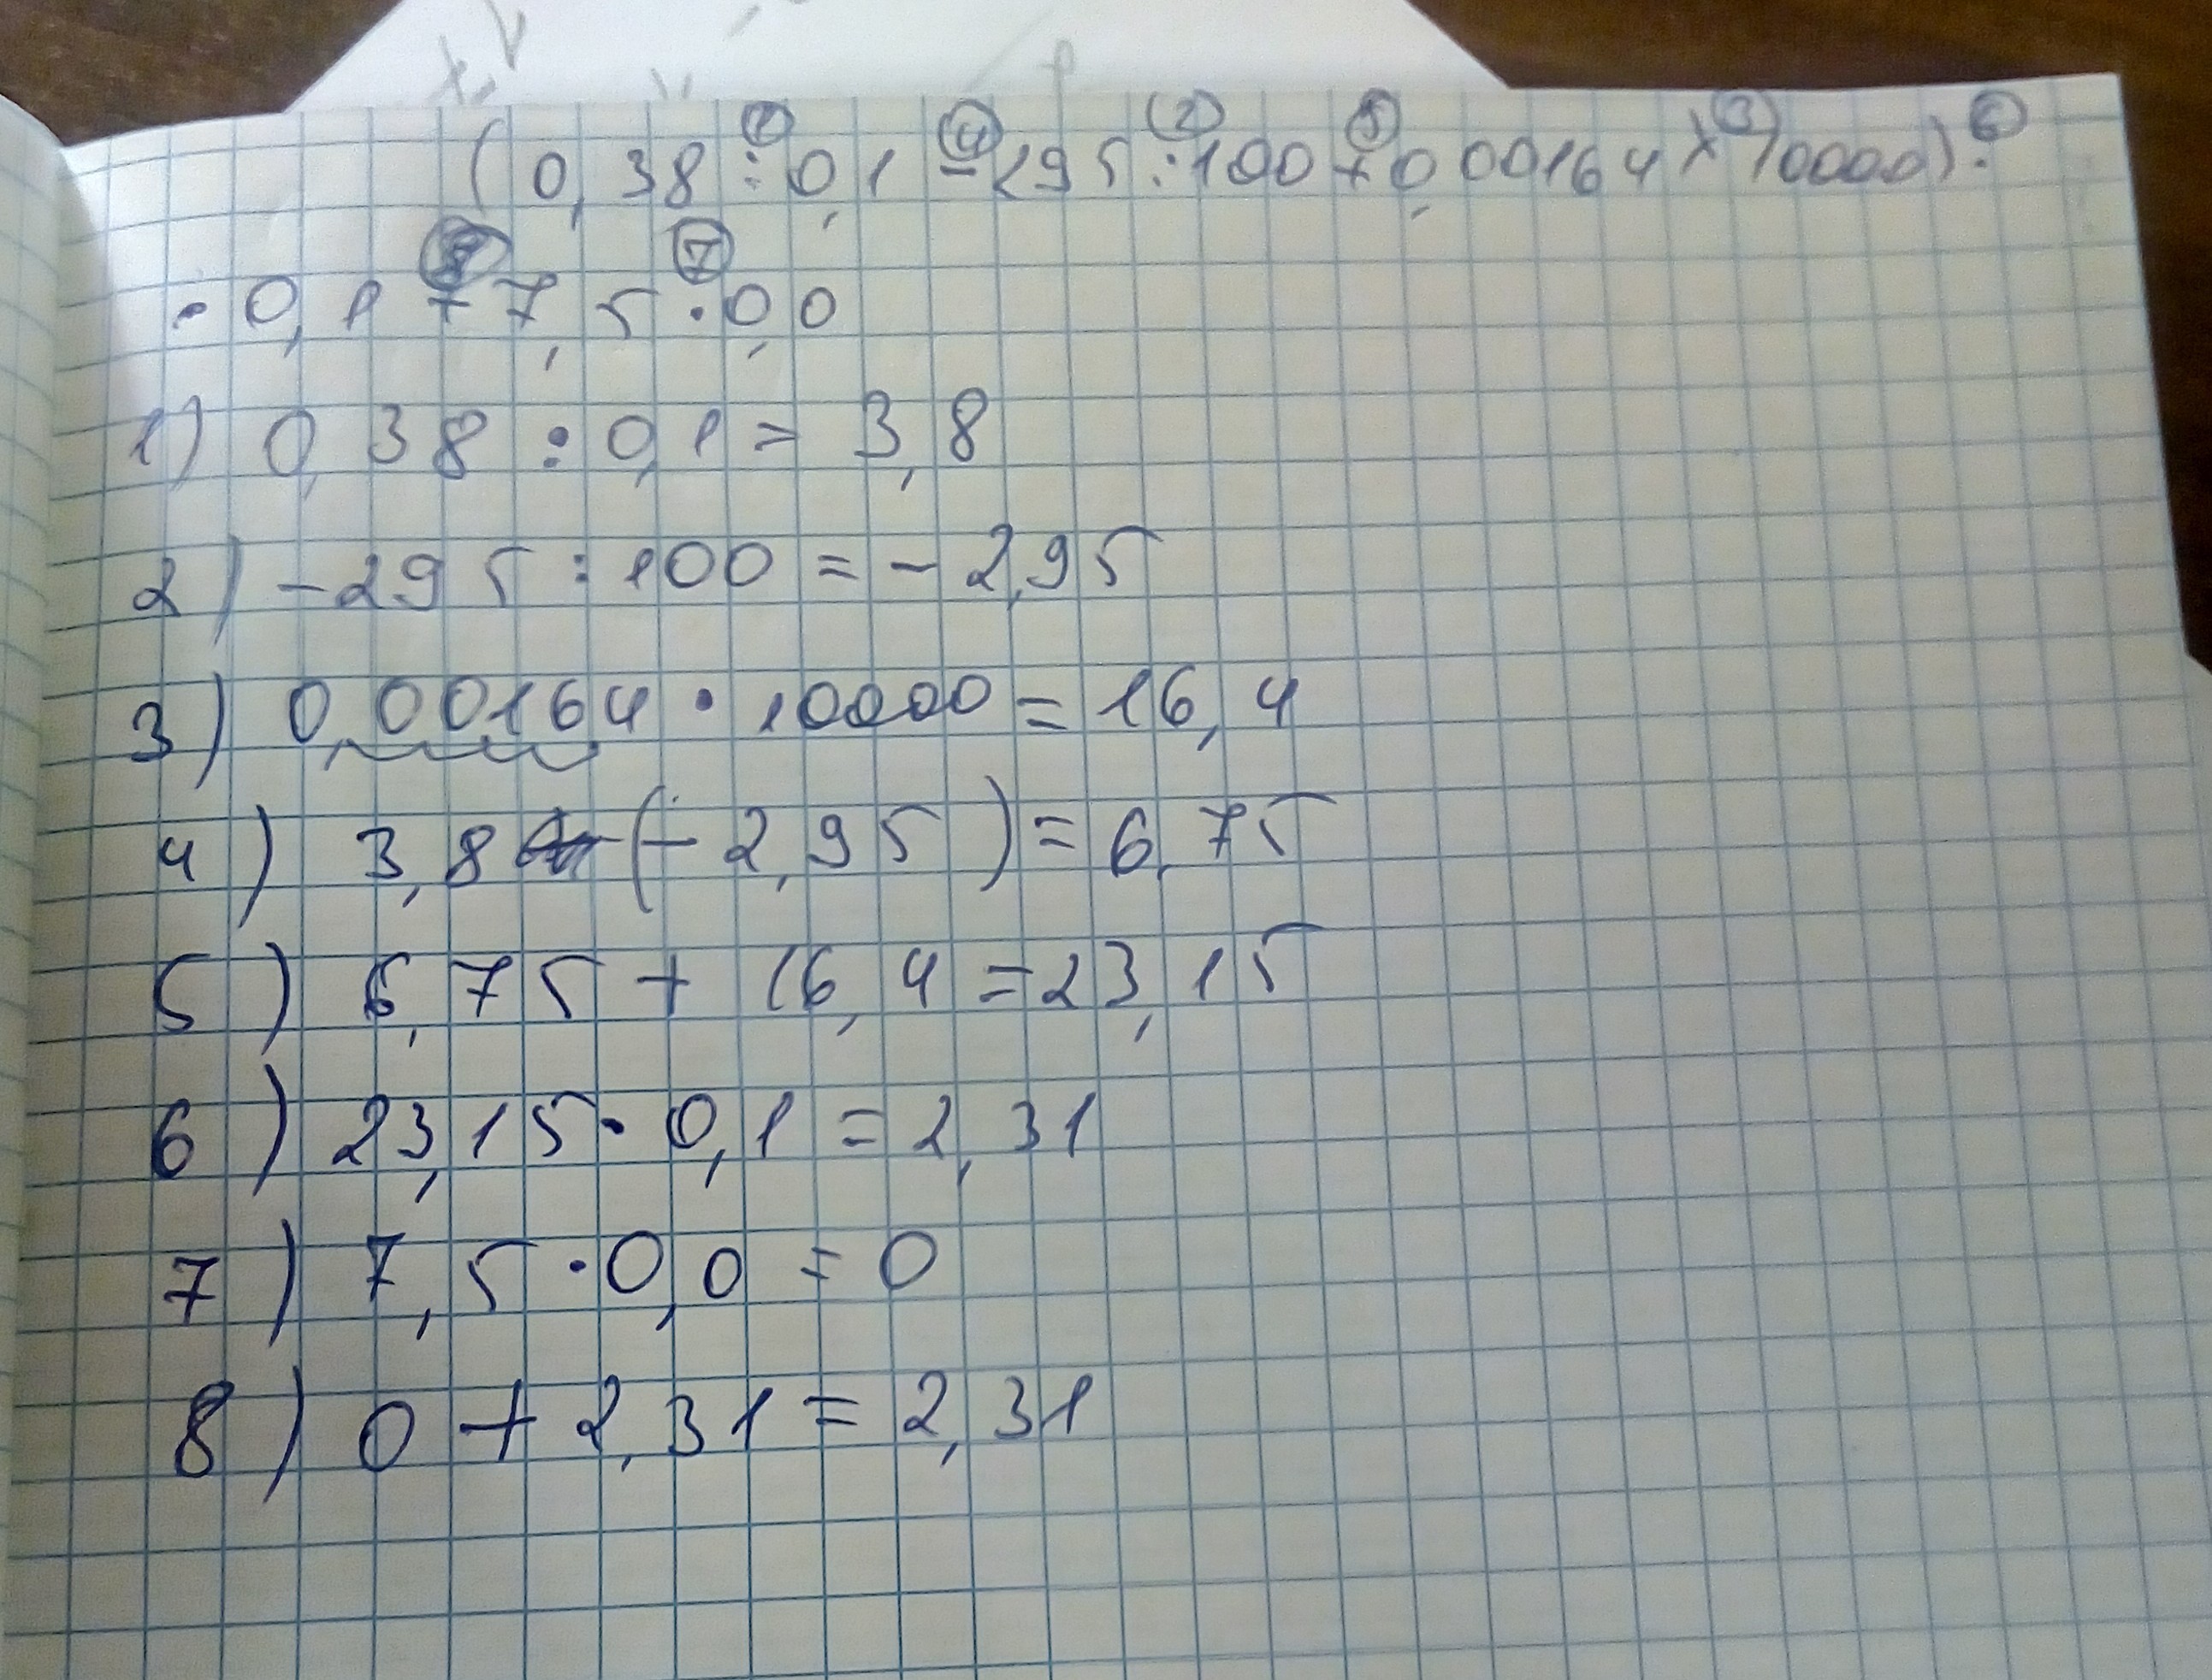 (0,38 : 0,1 - 295 : 100 + 0,00164 × 10000) ·
· 0,1 + 7,5 · 0,0
1) 0,38 : 0,1 = 3,8
2) -295 : 100 = -2,95
3) 0,00164 · 10000 = 16,4
4) 3,8 (-2,95) = 6,75
5) 6,75 + 16,4 = 23,15
6) 23,15 · 0,1 = 2,31
7) 7,5 · 0,0 = 0
8) 0 + 2,31 = 2,31